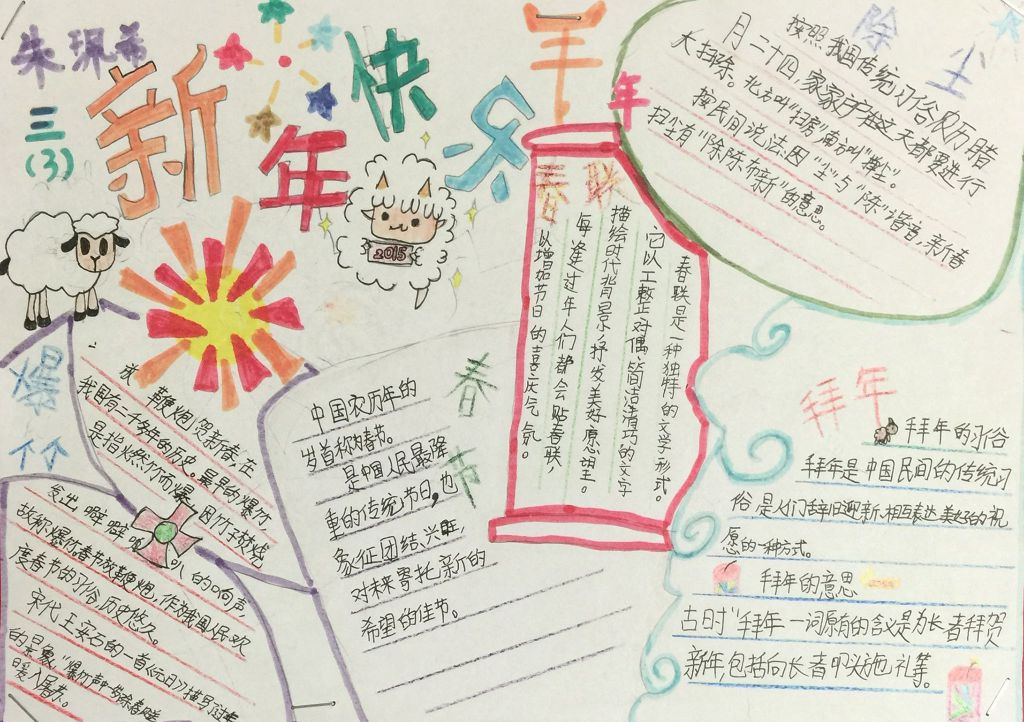 朱珮希
三(3)
新年快乐
羊年
2015
除尘
按照我国传统习俗及历腊
月二十四,家家户户在这天都要进行
大扫除。北方叫"扫房"南方叫"掸尘"。
按民间说法:因"尘"与"陈"谐音,新春
扫尘有"除陈布新"的意思。
春联
春联是一种独特的文学形式。
它以工整、对偶、简洁清巧的文字
描绘时代背景,抒发美好愿望。
每逢过年人们都会贴春联,
以增加节日的喜庆气氛。
爆竹
放鞭炮贺新春,在
我国有二千多年的历史。最早的爆竹
是指燃竹而爆,因竹子焚烧
发出噼噼啪叭的响声,
故称爆竹。春节放鞭炮,作为我国人民欢
度春节的习俗历史悠久。
宋代王安石的一首《元日》描写了过年
的景象,"爆竹声中
暖入屠苏。
春节
中国农历年的
岁首称为春节。
是中国人民最隆
重的传统节日,也
象征团结、兴旺,
对未来寄托新的
希望的佳节。
拜年
拜年的习俗
拜年是中国民间的传统习
俗是人们辞旧迎新、相互表达美好的祝
愿的一种方式。
拜年的意思
古时"拜年一词原有的含义是为长者拜贺
新年,包括向长者叩头施礼等。